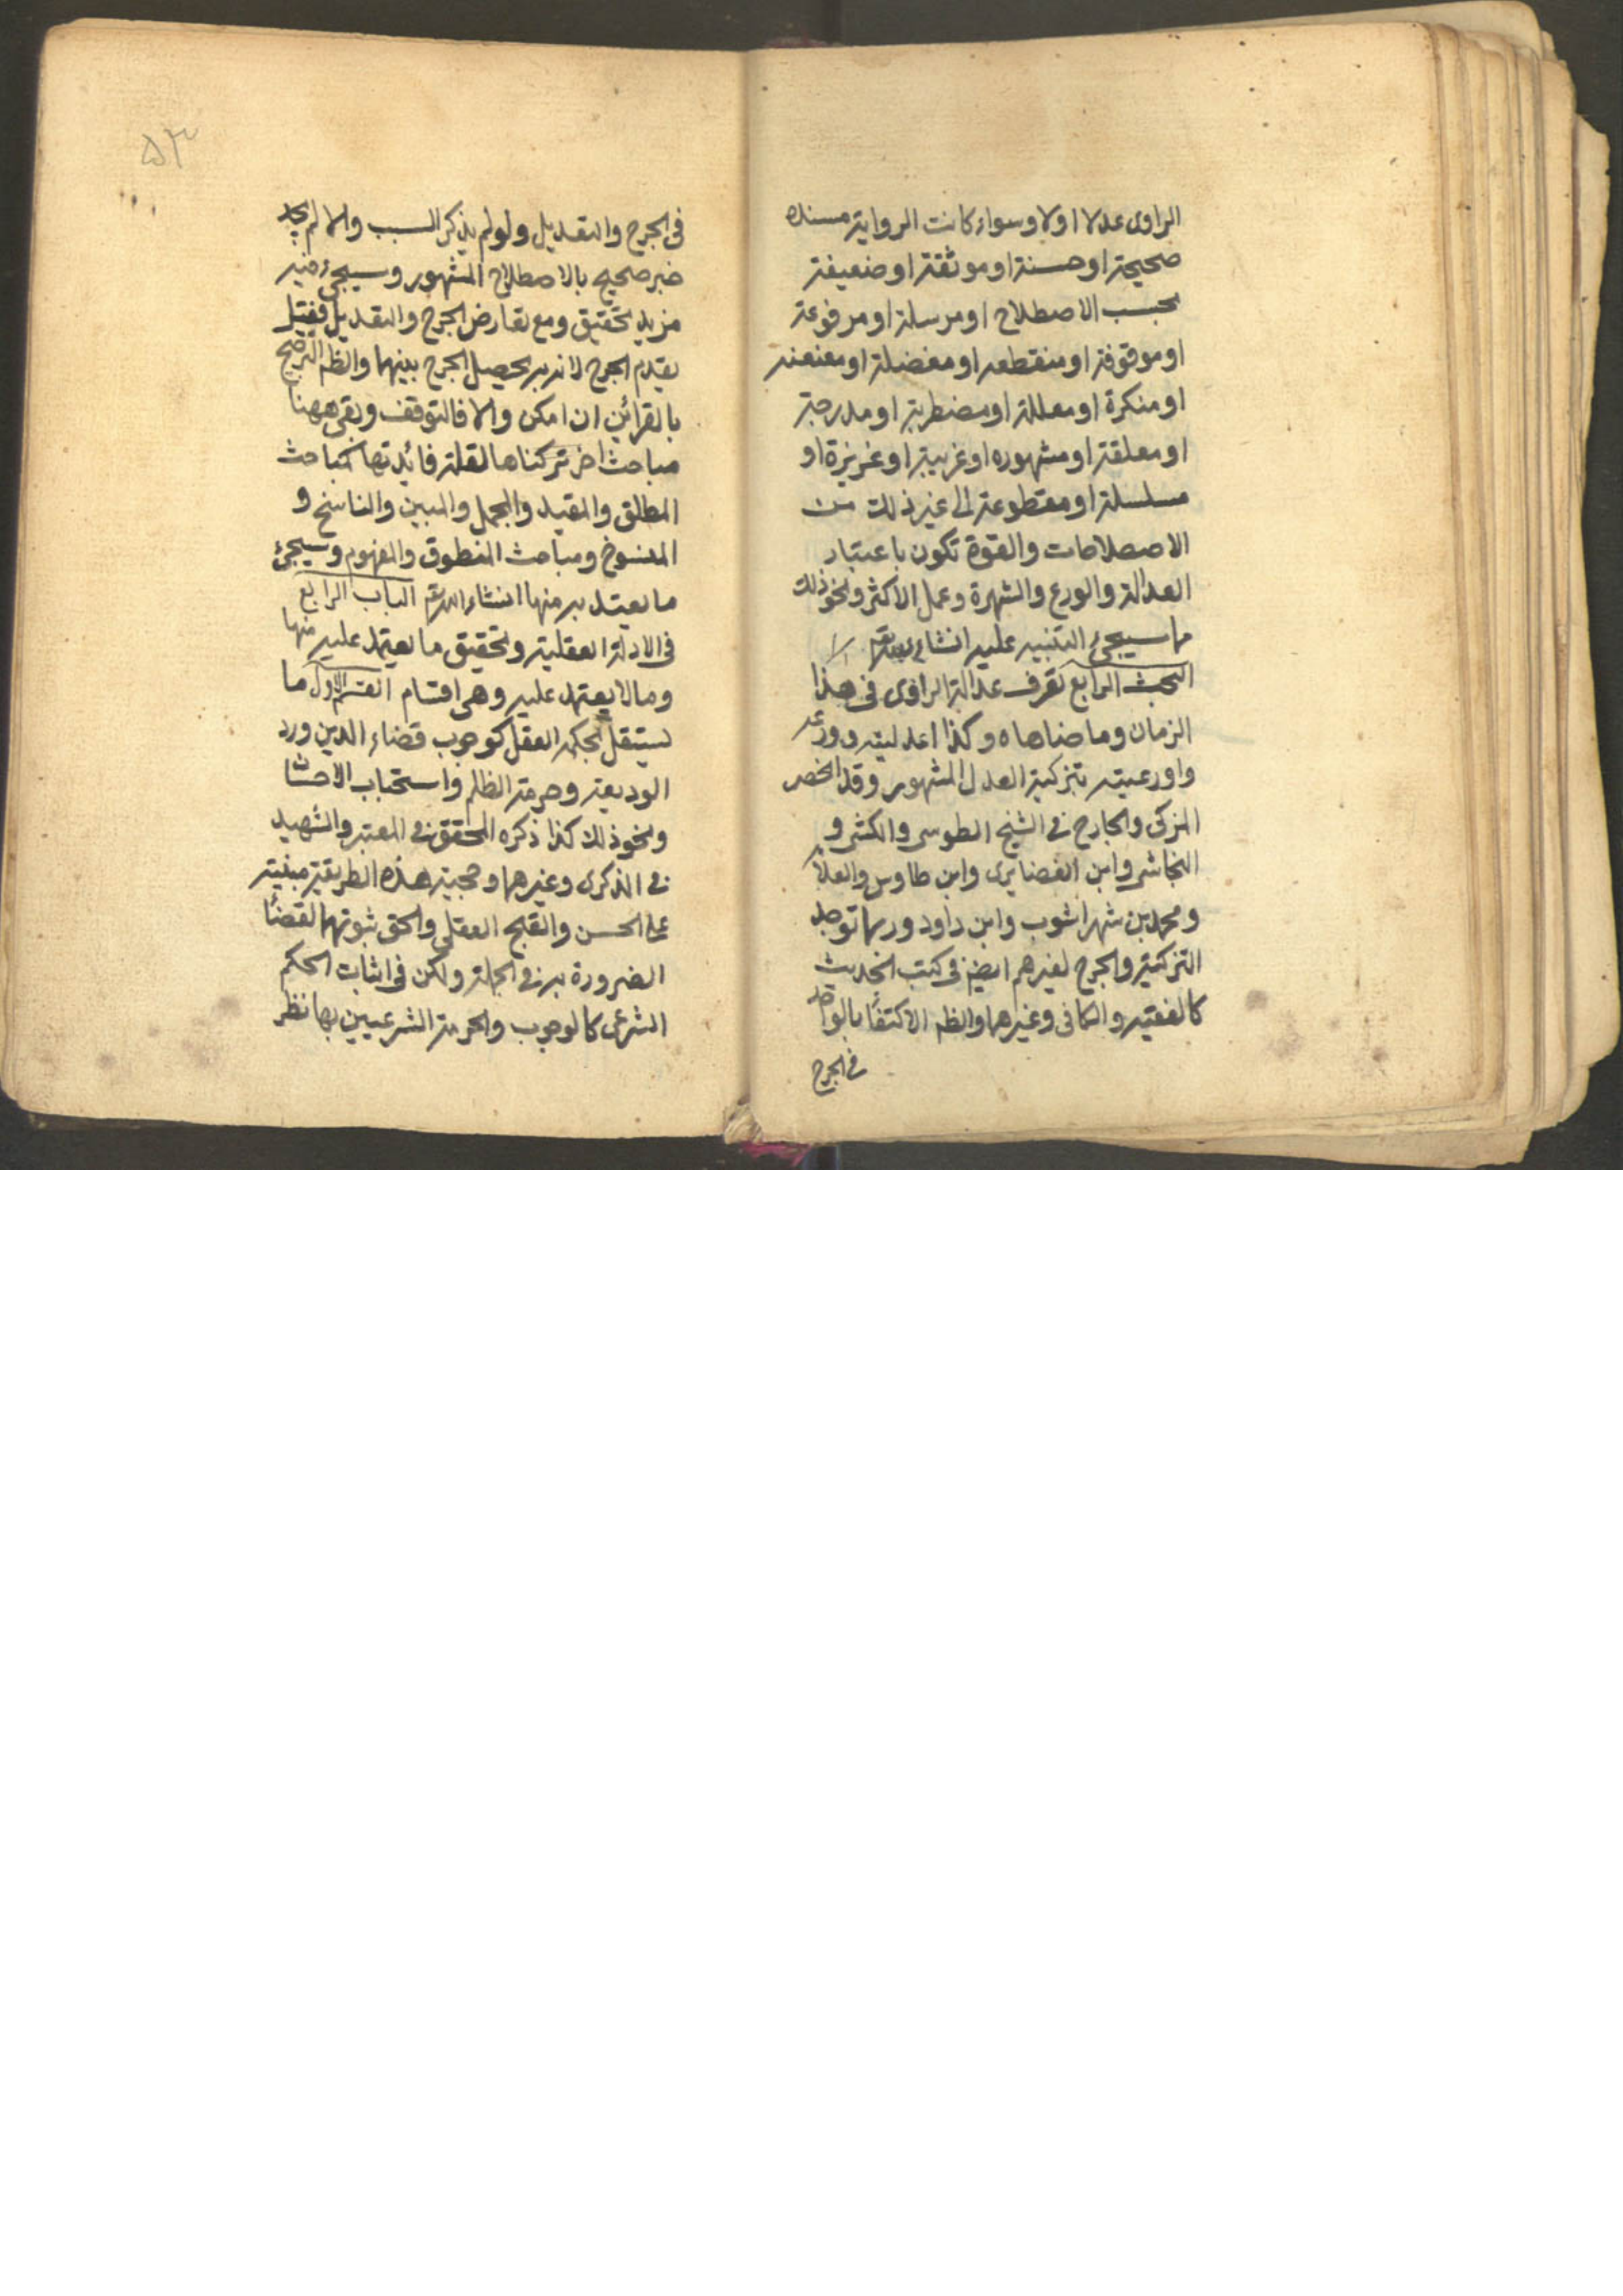 الراوى عدلا اولا وسواء كانت الرواية مسنده
صحيحة او حسنة او موثقة او ضعيفة
بحسب الاصطلاح او مرسلة او مرفوعة
او موقوفة او منقطعه او معضلة او معنعنه
او منكرة او معللة او مضطربة او مدرجة
او معلقة او مشهوره او غريبة او عزيزة او
مسلسلة او مقطوعة الى غير ذلك من
الاصطلاحات والقوة تكون باعتبار
العدالة والورع والشهرة وعمل الاكثر ونحو ذلك
مما سيجئ التنبيه عليه انشاء
البحث الرابع تعرف عدالة الراوى فى هذا
الزمان وما ضاهاه وكذا اعدليته وورعه
واورعيته بتزكية العدل المشهور وقد انحصر
المزكى والجارح فى الشيخ الطوسى والكشى و
النجاشى وابن الغضايرى وابن طاوس والعلا
ومحمد بن شهراشوب وابن داود وربما توجد
التزكية والجرح لغيرهم ايضا فى كتب الحديث
كالفقيه والكافى وغيرهما والظ الاكتفا بالواحد
فى الجرح
۵۳
فى الجرح والتعديل ولو لم يذكر السبب والا لم يوجد
خبر صحيح بالاصطلاح المشهور وسيجئ فيه
مزيد تحقيق ومع تعارض الجرح والتعديل فقيل
يقدم الجرح لانه به يحصل الجرح بينهما والظ الترجيح
بالقرائن ان امكن والا فالتوقف وبقى ههنا
مباحث اخر تركناها لقلة فائدتها كمباحث
المطلق والمقيد والمجمل والمبين والناسخ و
المنسوخ ومباحث المنطوق والمفهوم وسيجئ
ما يعتد به منها انشاء الله تع الباب الرابع
فى الادلة العقلية وتحقيق ما يعتمد عليه منها
وما لا يعتمد عليه وهى اقسام القسم الاول ما
يستقل بحكمه العقل كوجوب قضاء الدين ورد
الوديعة وحرمة الظلم واستحباب الاحسان
ونحو ذلك كذا ذكره المحقق فى المعتبر والشهيد
فى الذكرى وغيرهما وحجية هذه الطريقة مبنية
على الحسن والقبح العقلى والحق ثبوتهما لقضا
الضرورة به فى الجملة ولكن فى اثبات الحكم
الشرعى كالوجوب والحرمة الشرعيين بها نظر